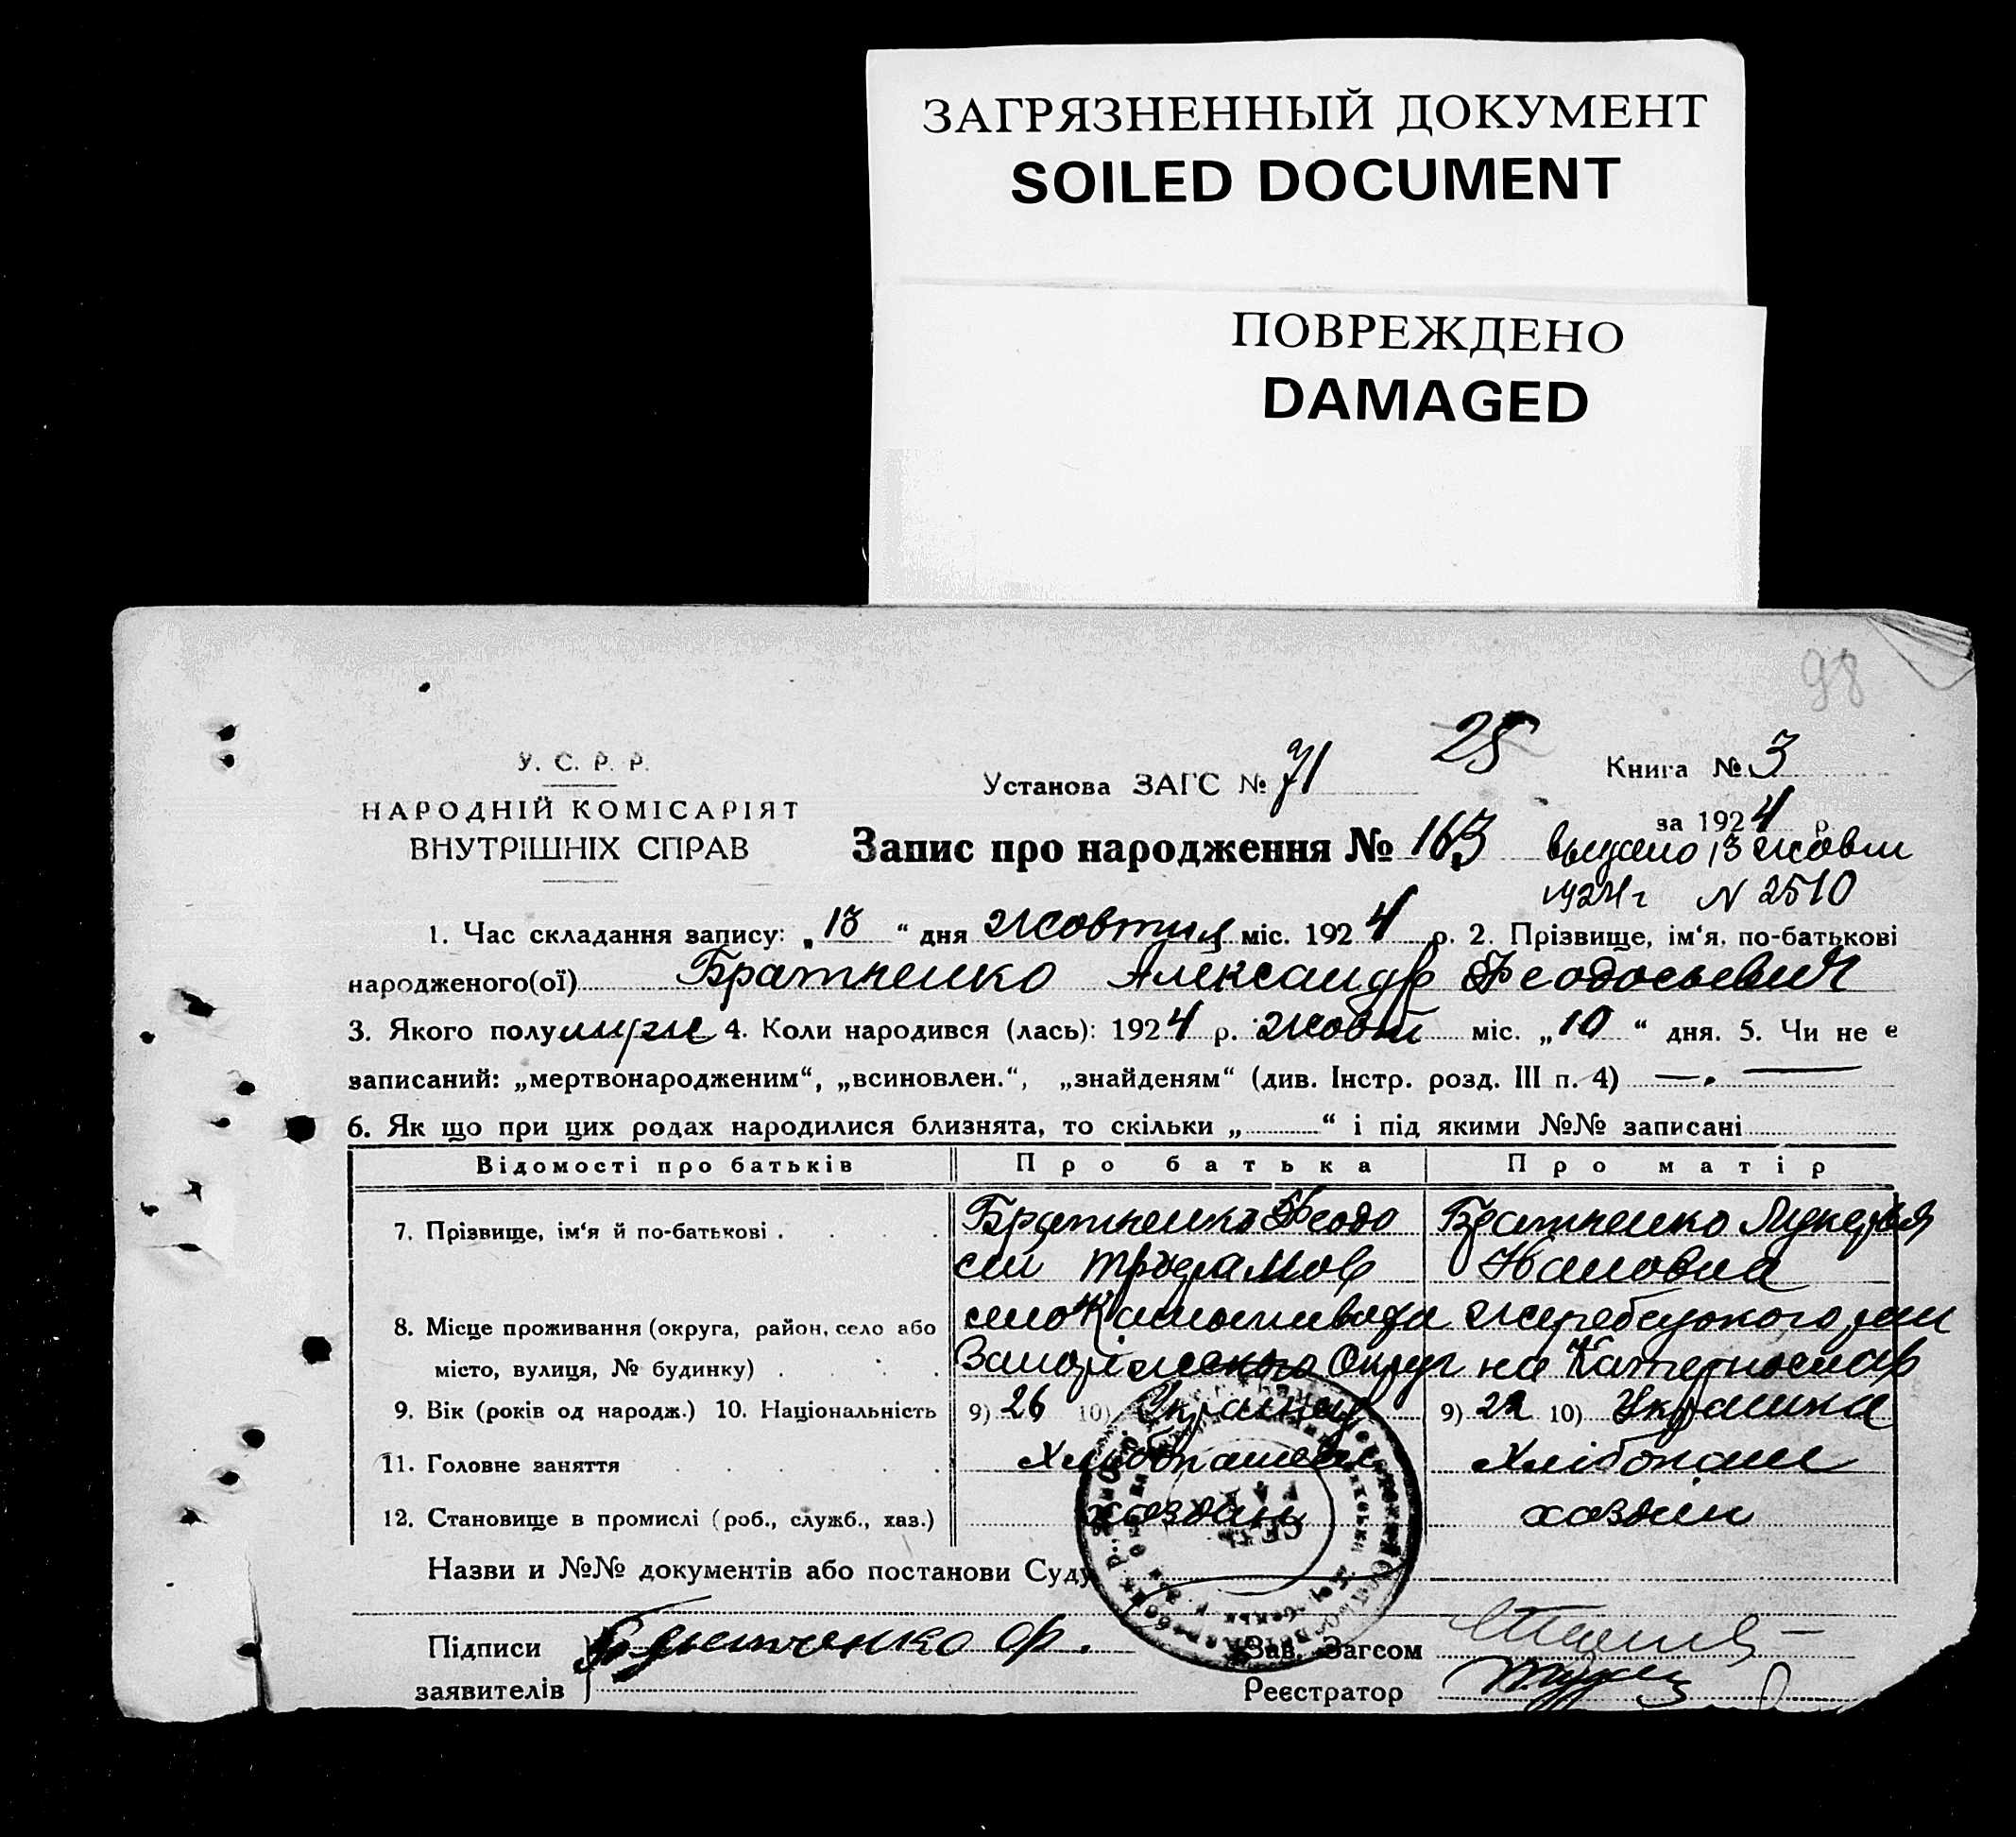 ЗАГРЯЗНЕННЫЙ ДОКУМЕНТ
SOILED DOCUMENT
ПОВРЕЖДЕНО
DAMAGED
98
У. С. Р. Р.
НАРОДНІЙ КОМІСАРІЯТ
ВНУТРІШНІХ СПРАВ
Установа ЗАГС № 71
25
Книга № 3
за 1924 р.
Запис про народження № 163
выдано 13 жовт
1924 г N 2510
1. Час складання запису: „13“ дня жовтня міс. 1924 р. 2. Прізвище, ім‘я, по-батькові
народженого(ої) Братченко Александр Феодосьевич
3. Якого полу муж 4. Коли народився (лась): 1924 р. жовт міс. „10“ дня. 5. Чи не є
записаний: „мертвонародженим“, „всиновлен.“, „знайденям“ (див. Інстр. розд. III п. 4) —
6. Як що при цих родах народилися близнята, то скільки „ “ і під якими №№ записані
Відомості про батьків Про батька Про матір
7. Прізвище, ім‘я й по-батькові . Братченко Феодо Братченко Лукерья
сий
8. Місце проживання (округа, район, село або село жеребецького рай
місто, вулиця, № будинку) . Округ на Катеринослав
9. Вік (років од народж.) 10. Національність 9) 26 10) Українец 9) 22 10) Українка
11. Головне заняття Хлібопашец Хлібопаш
12. Становище в промислі (роб., служб., хаз.) хозяїн хозяїн
Назви и №№ документів або постанови Суду
Підписи Братченко Ф. Зав. Загсом
заявителів Реєстратор